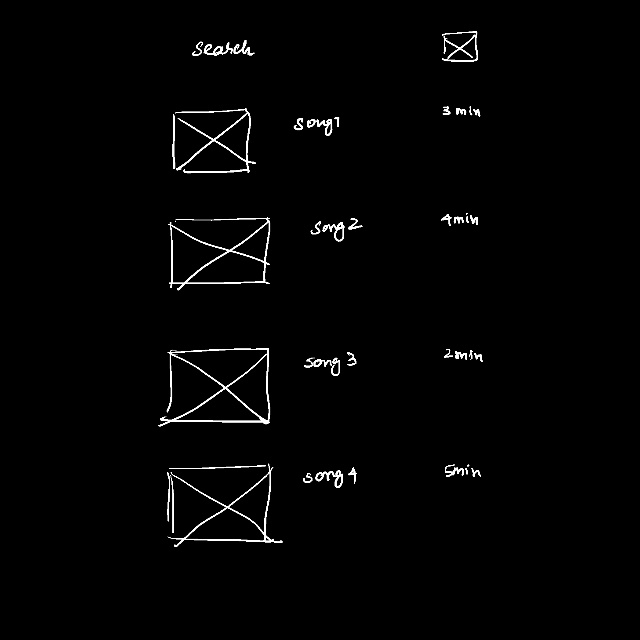 search
song1 3 min
song2 4min
song 3 2min
song 4 5min